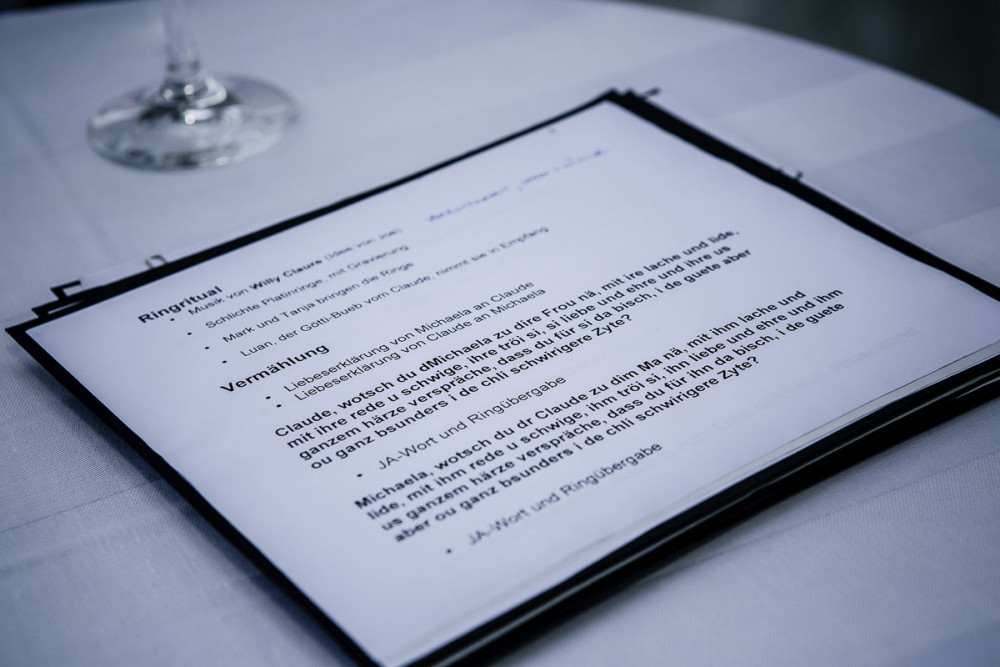 Ringritual
• Musik von Willy Claure (Idee von Joel)
• Schlichte Platinringe, mit Gravierung
• Mark und Tanja bringen die Ringe
• Luan, der Götti-Bueb vom Claude, nimmt sie in Empfang
Vermählung
• Liebeserklärung von Michaela an Claude
• Liebeserklärung von Claude an Michaela
Claude, wotsch du dMichaela zu dire Frou nä, mit ire lache und lide,
mit ihre rede u schwige, ihre tröi si, si liebe und ehre und ihre us
ganzem härze verspräche, dass du für si da bisch, i de guete aber
ou ganz bsunders i de chli schwirigere Zyte?
• JA-Wort und Ringübergabe
Michaela, wotsch du dr Claude zu dim Ma nä, mit ihm lache und
lide, mit ihm rede u schwige, ihm tröi si, ihn liebe und ehre und ihm
us ganzem härze verspräche, dass du für ihn da bisch, i de guete
aber ou ganz bsunders i de chli schwirigere Zyte?
• JA-Wort und Ringübergabe